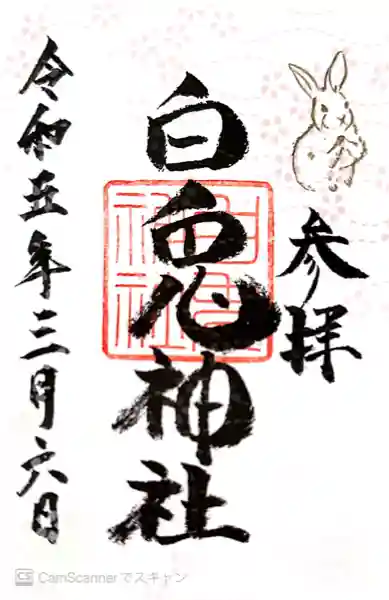 参拝
白兎神社
白兎
神社
令和五年三月六日
CS CamScannerでスキャン